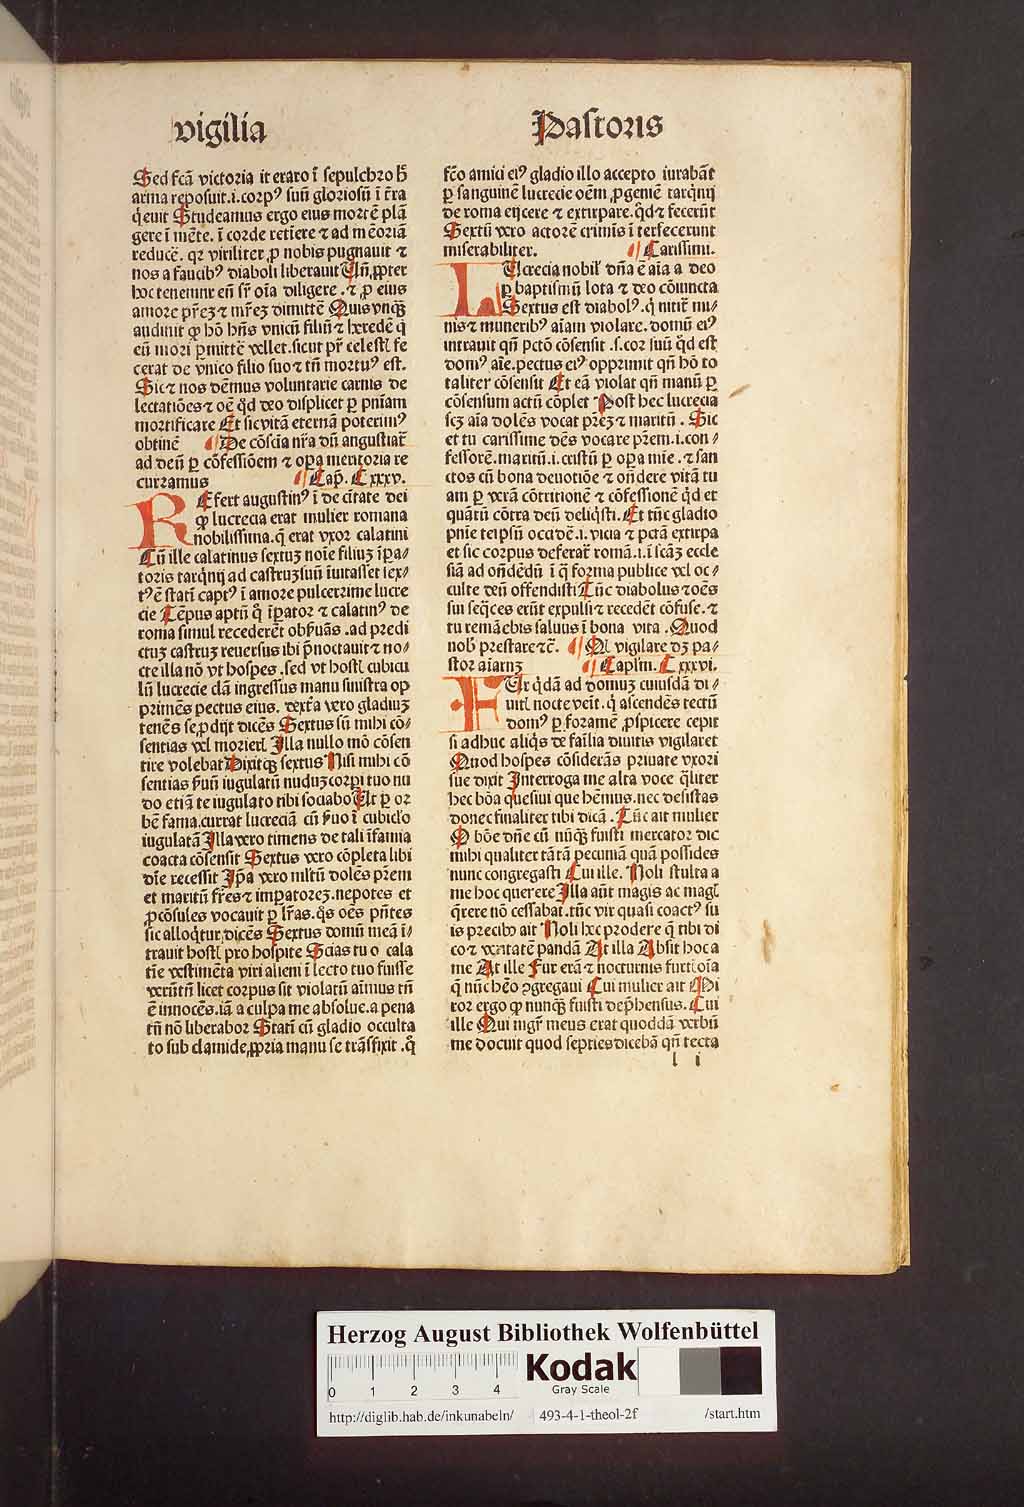 vigilia
Pastoris
Sed fcā victoria it eraro ī sepulchro bꝰ
arma reposuit .i. corpꝰ suū gloriosū ī t̄ra
q̇euit Studeamus ergo eius mortē plā
gere ī mēte .i. corde retīere ⁊ ad mēoriā
reducē. qꝛ viriliter ꝓ nobis pugnauit ⁊
nos a faucibꝰ diaboli liberauit Un̄ ꝓpter
hoc tenemur eū sr̄ oīa diligere .⁊ ꝓ eius
amore pr̄eꝫ ⁊ mr̄eꝫ dimittē Quis vnqꝫ
audiuit ꝙ hō hn̄s vnicū filiū ⁊ heredē q̇
eū mori ꝑmittē vellet .sicut pr̄ celestꝭ fe
cerat de vnico filio suo ⁊ tn̄ mortuꝰ est.
Sic ⁊ nos dēmus voluntarie carnis de
lectatiōes ⁊ oē qd̄ deo displicet ꝑ pn̄iam
mortificare Et sic vitā eternā poterimꝰ
obtinē ¶ De cōsciā nr̄a dū angustiat̄
ad deū ꝑ cōfessiōem ⁊ oꝑa meritoria re
curramus ¶ Cap̄. Cxxxv.
REfert augustinꝰ ī de cītate dei
ꝙ lucrecia erat mulier romana
nobilissima .q̄ erat vxor calatini
Cū ille calatinus sextuꝫ noīe filiuꝫ īꝑa⸗
toris tarq̇nij ad castruꝫ suū īuitasset sex⸗
tꝰ ē statī captꝰ ī amore pulcerrime lucre
cie Tēpus aptū q̇ īꝑator ⁊ calatinꝰ de
roma simul recederēt obseruās .ad predi
ctuꝫ castruꝫ reuersus ibi ꝑnoctauit ⁊ no⸗
cte illa nō vt hospes .sed vt hostꝭ cubicu
lū lucrecie clā ingressus manu sinistra op
primēs pectus eius. dext̄a vero gladiuꝫ
tenēs se ꝓdijt dicēs Sextus sū mihi cō⸗
sentias vel morierꝭ Illa nullo mō cōsen
tire volebat Dixitqꝫ sextus Nisi mihi cō
sentias ẜuū iugulatū nuduꝫ corpi tuo nu
do etiā te iugulato tibi sociabo Ut ꝑ or
bē fama .currat lucreciā cū ẜuo ī cubicl̄o
iugulatā Illa vero timens de tali īfamia
coacta cōsensit Sextus vero cōpleta libi
dīe recessit Ip̄a vero mltū dolēs pr̄em
et maritū fr̄es ⁊ imꝑatoreꝫ .nepotes et
ꝓcōsules vocauit ꝑ lr̄as. q̇s oēs pn̄tes
sic alloq̇tur dicēs Sextus domū meā ī⸗
trauit hostꝭ pro hospite Scias tu o cala
tīe vestimēta viri alieni ī lecto tuo fuisse
verūtn̄ licet corpus sit violatū aīmus tn̄
ē innocēs .iā a culpa me absolue .a pena
tn̄ nō liberabor Statī cū gladio occulta
to sub clamide ꝓpria manu se trāsfixit .q̇
fc̄o amici eiꝰ gladio illo accepto iurabāt
ꝑ sanguinē lucrecie oēm ꝓgeniē tarq̇nij
de roma eijcere ⁊ extirpare .qd̄ ⁊ fecerūt
Sextū vero actorē crimīs ī terfecerunt
miserabiliter. ¶ Carissimi.
LUcrecia nobilꝭ dn̄a ē aīa a deo
ꝑ baptismū lota ⁊ deo cōiuncta
Sextus est diabolꝰ .q̇ nitit̄ mi⸗
nis ⁊ muneribꝰ aīam violare .domū eiꝰ
intrauit qn̄ pctō cōsensit .s. cor suū qd̄ est
domꝰ aīe .pectus eiꝰ opprimit qn̄ hō to
taliter cōsensit Et eā violat qn̄ manū ꝑ
cōsensum actū cōplet Post hec lucrecia
scꝫ aīa dolēs vocat pr̄eꝫ ⁊ maritū . Sic
et tu carissime dēs vocare pr̄em .i. con⸗
fessorē .maritū .i. cristū ꝑ oꝑa mīe .⁊ san
ctos cū bona deuotiōe ⁊ on̄dere vitā tu
am ꝑ verā cōtritionē ⁊ cōfessionē qd̄ et
quātū cōtra deū deliq̇sti .Et tūc gladio
pn̄ie teipsū occidē .i. vicia ⁊ pctā extirpa
et sic corpus deferat̄ romā .i. ī scāꝫ eccle
siā ad on̄dēdū ī q̄ forma publice vel oc⸗
culte deū offendisti Tūc diabolus ⁊ oēs
sui seq̄ces erūt expulsi ⁊ recedēt cōfuse .⁊
tu remāebis saluus ī bona vita . Quod
nobꝭ prestare ⁊c̄. ¶ Ql̄ vigilare dꝫ pa⸗
stor aīarūꝫ ¶ Caplm̄. Cxxxvi.
FUr q̇dā ad domuꝫ cuiusdā di⸗
uitꝭ nocte veīt .q̇ ascendēs tectū
domꝰ ꝑ foramē ꝓspicere cepit
si adhuc aliq̇s de faīlia diuitis vigilaret
Quod hospes cōsiderās priuate vxori
sue dixit Interroga me alta voce q̄liter
hec bōa quesiui que hēmus .nec desistas
donec finaliter tibi dicā . Tūc ait mulier
O bōe dn̄e cū nūqꝫ fuisti mercator dic
mihi qualiter tātā pecuniā quā possides
nunc congregasti Cui ille. Noli stulta a
me hoc querere Illa aūt magis ac magꝭ
q̄rere nō cessabat .tūc vir quasi coactꝰ su
is precibꝰ ait Noli hec prodere q̄ tibi di
co ⁊ veritatē pandā At illa Absit hoc a
me At ille Fur erā ⁊ nocturnis furtꝭ oīa
q̄ nūc hēo ꝯgregaui Cui mulier ait Mi
ror ergo ꝙ nunqꝫ fuisti dep̄hensus. Cui
ille Qui mgr̄ meus erat quoddā verbū
me docuit quod septies dicebā qn̄ tecta
l i
Herzog August Bibliothek Wolfenbüttel
0 1 2 3 4
Kodak
Gray Scale
http://diglib.hab.de/inkunabeln/ 493-4-1-theol-2f /start.htm